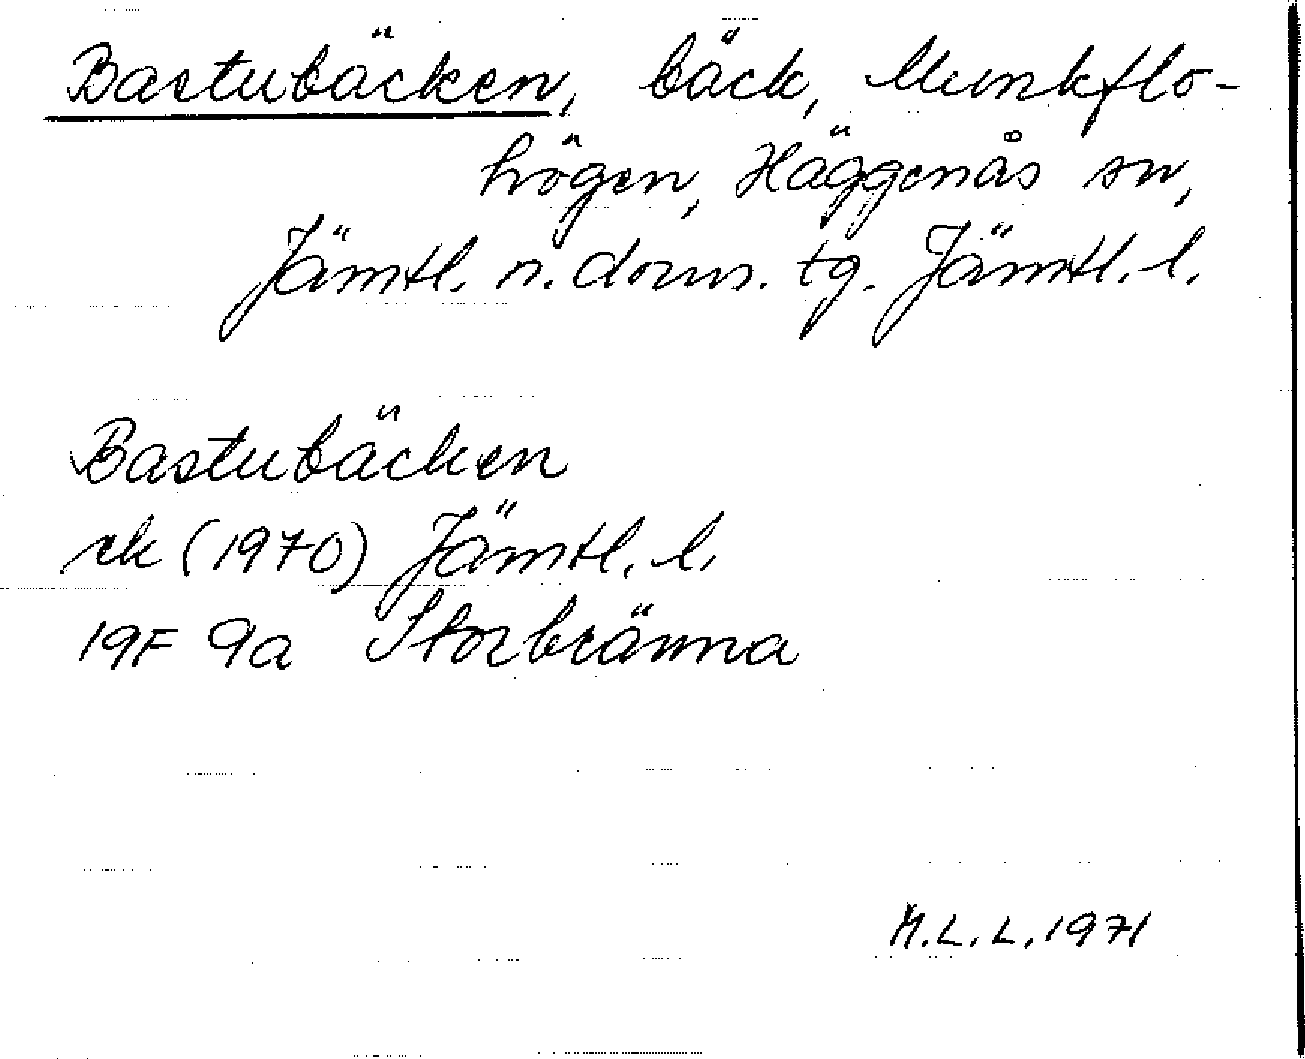 Bastubäcken, bäck, Munkflo-
högen, Häggenås sn,
Jämtl. n. doms. tg. Jämtl. l.
Bastubäcken
ek (1970) Jämtl. l.
19F 9a Storbränna
M.L.L. 1971